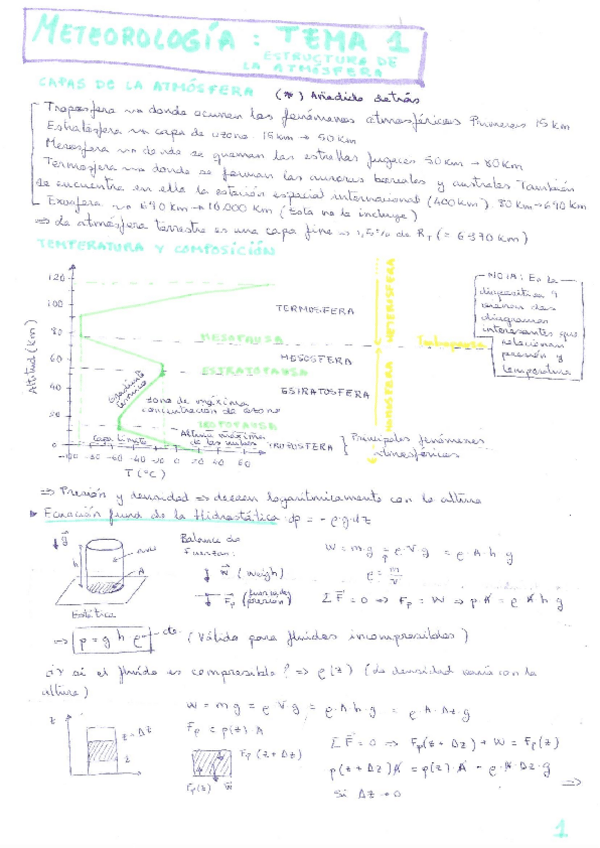 METEOROLOGÍA : TEMA 1
ESTRUCTURA DE
LA ATMÓSFERA
CAPAS DE LA ATMÓSFERA (*) Añadido detrás
Troposfera donde ocurren los fenómenos atmosféricos Primeros 15 km
Estratosfera capa de ozono 15 km → 50 km
Mesosfera donde se queman las estrellas fugaces 50 km → 80 km
Termosfera donde se forman las auroras boreales y australes También
se encuentra en ella la estación espacial internacional (400 km) 80 km → 640 km
Exosfera 640 km → 10.000 km (Esta no la incluye)
⇒ La atmósfera terrestre es una capa fina 1,5% de R_T (= 6370 km)
TEMPERATURA Y COMPOSICIÓN
Altitud (km)
120
100
80
60
40
20
0
-100 -80 -60 -40 -20 0 20 40 60
T (°C)
TERMOSFERA
MESOPAUSA
MESOSFERA
ESTRATOPAUSA
ESTRATOSFERA
Gradiente térmico
zona de máxima
concentración de ozono
Capa límite
Altura máxima
de las nubes
TROPOSFERA
HETEROSFERA
HOMOSFERA
Principales fenómenos
atmosféricos
NOTA: En la
diapositiva 9
diagramas
interesantes que
relacionan
presión y
temperatura
⇒ Presión y densidad ⇒ decaen logarítmicamente con la altura
Ecuación fund de la Hidrostática: dp = - ρ·g·dz
g
h
A
Estática
Balance de
fuerzas:
W (weigh)
Fp (fuerza de
presión)
W = mg = ρ·V·g = ρ·A·h·g
ρ = m/V
ΣF = 0 ⇒ Fp = W ⇒ p·A = ρ·A·h·g
p = g h ρ cte (Válida para fluidos incompresibles)
¿Y si el fluido es compresible? ⇒ ρ(z) (la densidad varía con la
altura)
z
z + Δz
z
W = mg = ρ·V·g = ρ·A·h·g = ρ·A·Δz·g
Fp = p(z)·A
Fp (z+Δz)
Fp(z) W
ΣF = 0 ⇒ Fp(z+Δz) + W = Fp(z)
p(z+Δz)A = p(z)·A - ρ·A·Δz·g
⇒
Si Δz → 0
1